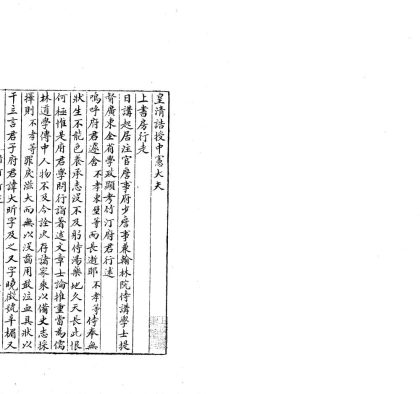 皇清誥授中憲大夫
上書房行走
日講起居注官詹事府少詹事兼翰林院侍講學士提
督廣東全省學政顯考竹汀府君行述
嗚呼府君遽舍不孝東壁等而長逝耶不孝等侍奉無
狀生不能色養承志沒不及躬侍湯藥地久天長此恨
何極惟是府君學問行誼著述文章士論推重當為儒
林道學傳中人物不及今詮次存諸家乘以備史志採
擇則不孝等罪戾滋大而無以沒齒用敢泣血具狀以
干立言君子府君諱大昕字及之又字曉徵號辛楣又